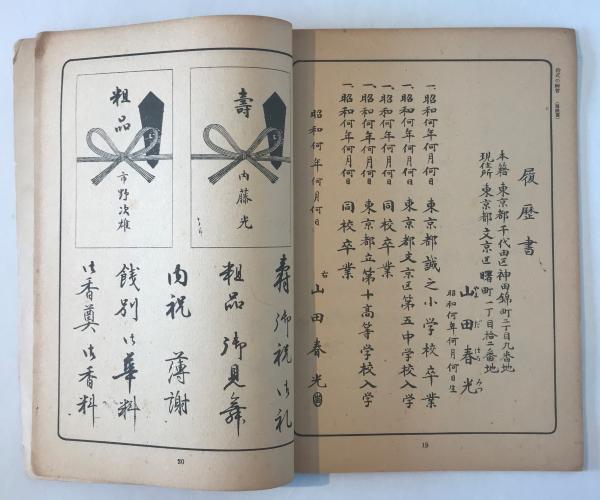 履歴書
本籍 東京都千代田区神田錦町二丁目九番地
現住所 東京都文京区曙町一丁目拾二番地
山田春光
やまだはるみつ
昭和何年何月何日生
一、昭和何年何月何日 東京都誠之小学校卒業
一、昭和何年何月何日 東京都文京区第五中学校入学
一、昭和何年何月何日 同校卒業
一、昭和何年何月何日 東京都立第十高等学校入学
一、昭和何年何月何日 同校卒業
昭和何年何月何日
右 山田春光
19
壽
内藤光
粗品
市野次雄
壽 御祝 御礼
粗品 御見舞
内祝 薄謝
餞別 御華料
御香奠 御香料
20